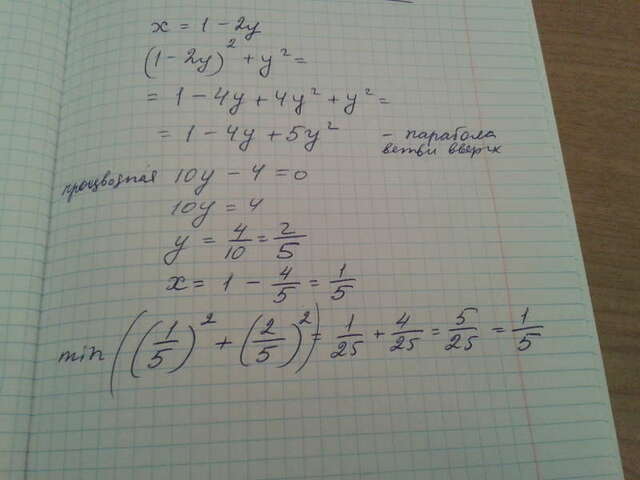 x = 1 - 2y
(1 - 2y)² + y² =
= 1 - 4y + 4y² + y² =
= 1 - 4y + 5y² - парабола
ветви вверх
процводная 10y - 4 = 0
10y = 4
y = 4/10 = 2/5
x = 1 - 4/5 = 1/5
min((1/5)² + (2/5)²) = 1/25 + 4/25 = 5/25 = 1/5